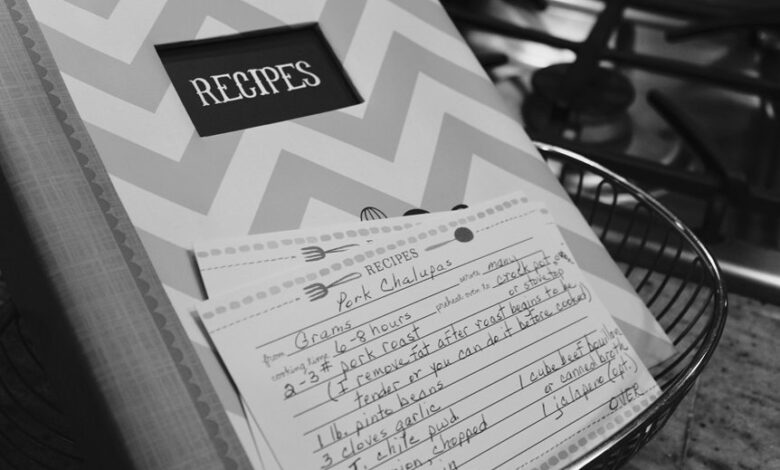 RECIPES
RECIPES
Pork Chalupas
from Grams serves many
cooking time 6-8 hours preheat oven to crock pot, or
or stove top
2-3# pork roast
(I remove fat after roast begins to be
tender or you can do it before cooked)
1 lb. pinto beans 1 cube beef bouillon
3 cloves garlic a canned broth
T. chile pwd 1 jalapeno (opt.)
onion, chopped OVER